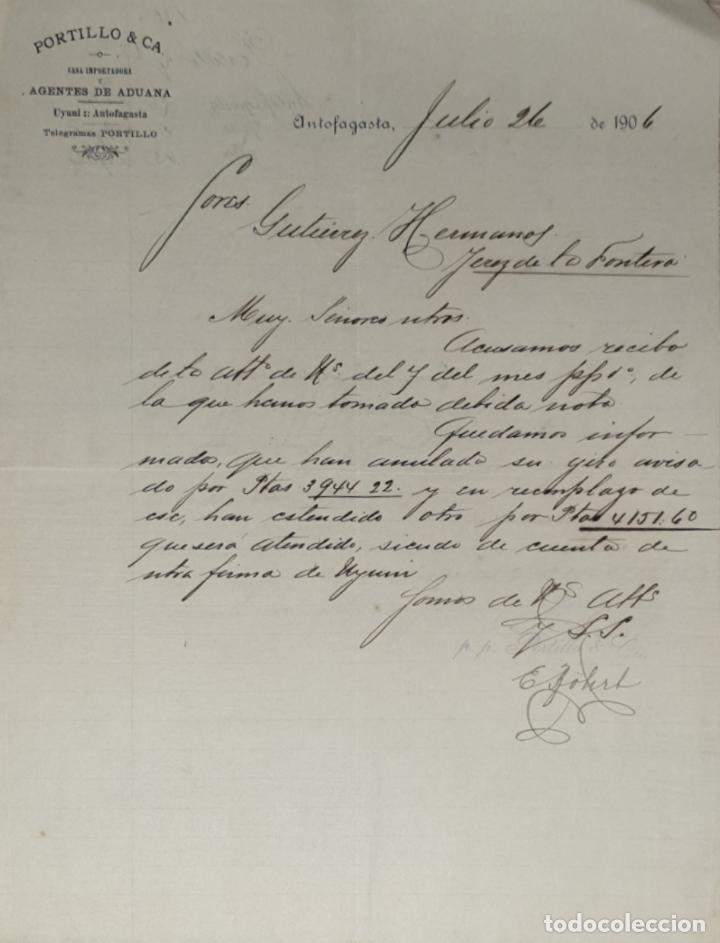 PORTILLO & CA.
CASA IMPORTADORA
Y
AGENTES DE ADUANA
Uyuni :: Antofagasta
Telegramas PORTILLO
Antofagasta, Julio 26 de 1906
Sores.
Gutierrez Hermanos.
Jerez de la Fontera
Muy Señores ntros.
Acusamos recibo
de la atta de Us. del 7 del mes ppdo, de
la que hemos tomado debida nota
Quedamos infor-
mados, que han anulado su giro avisa
do por Ptas 3944 22. y en remplazo de
ese, han estendido otro por Ptas 4151.60
que será atendido, siendo de cuenta de
ntra firma de Uyuni
Somos de Us Atts
y S.S.
p. p. Portillo & Ca.
todocoleccion.net